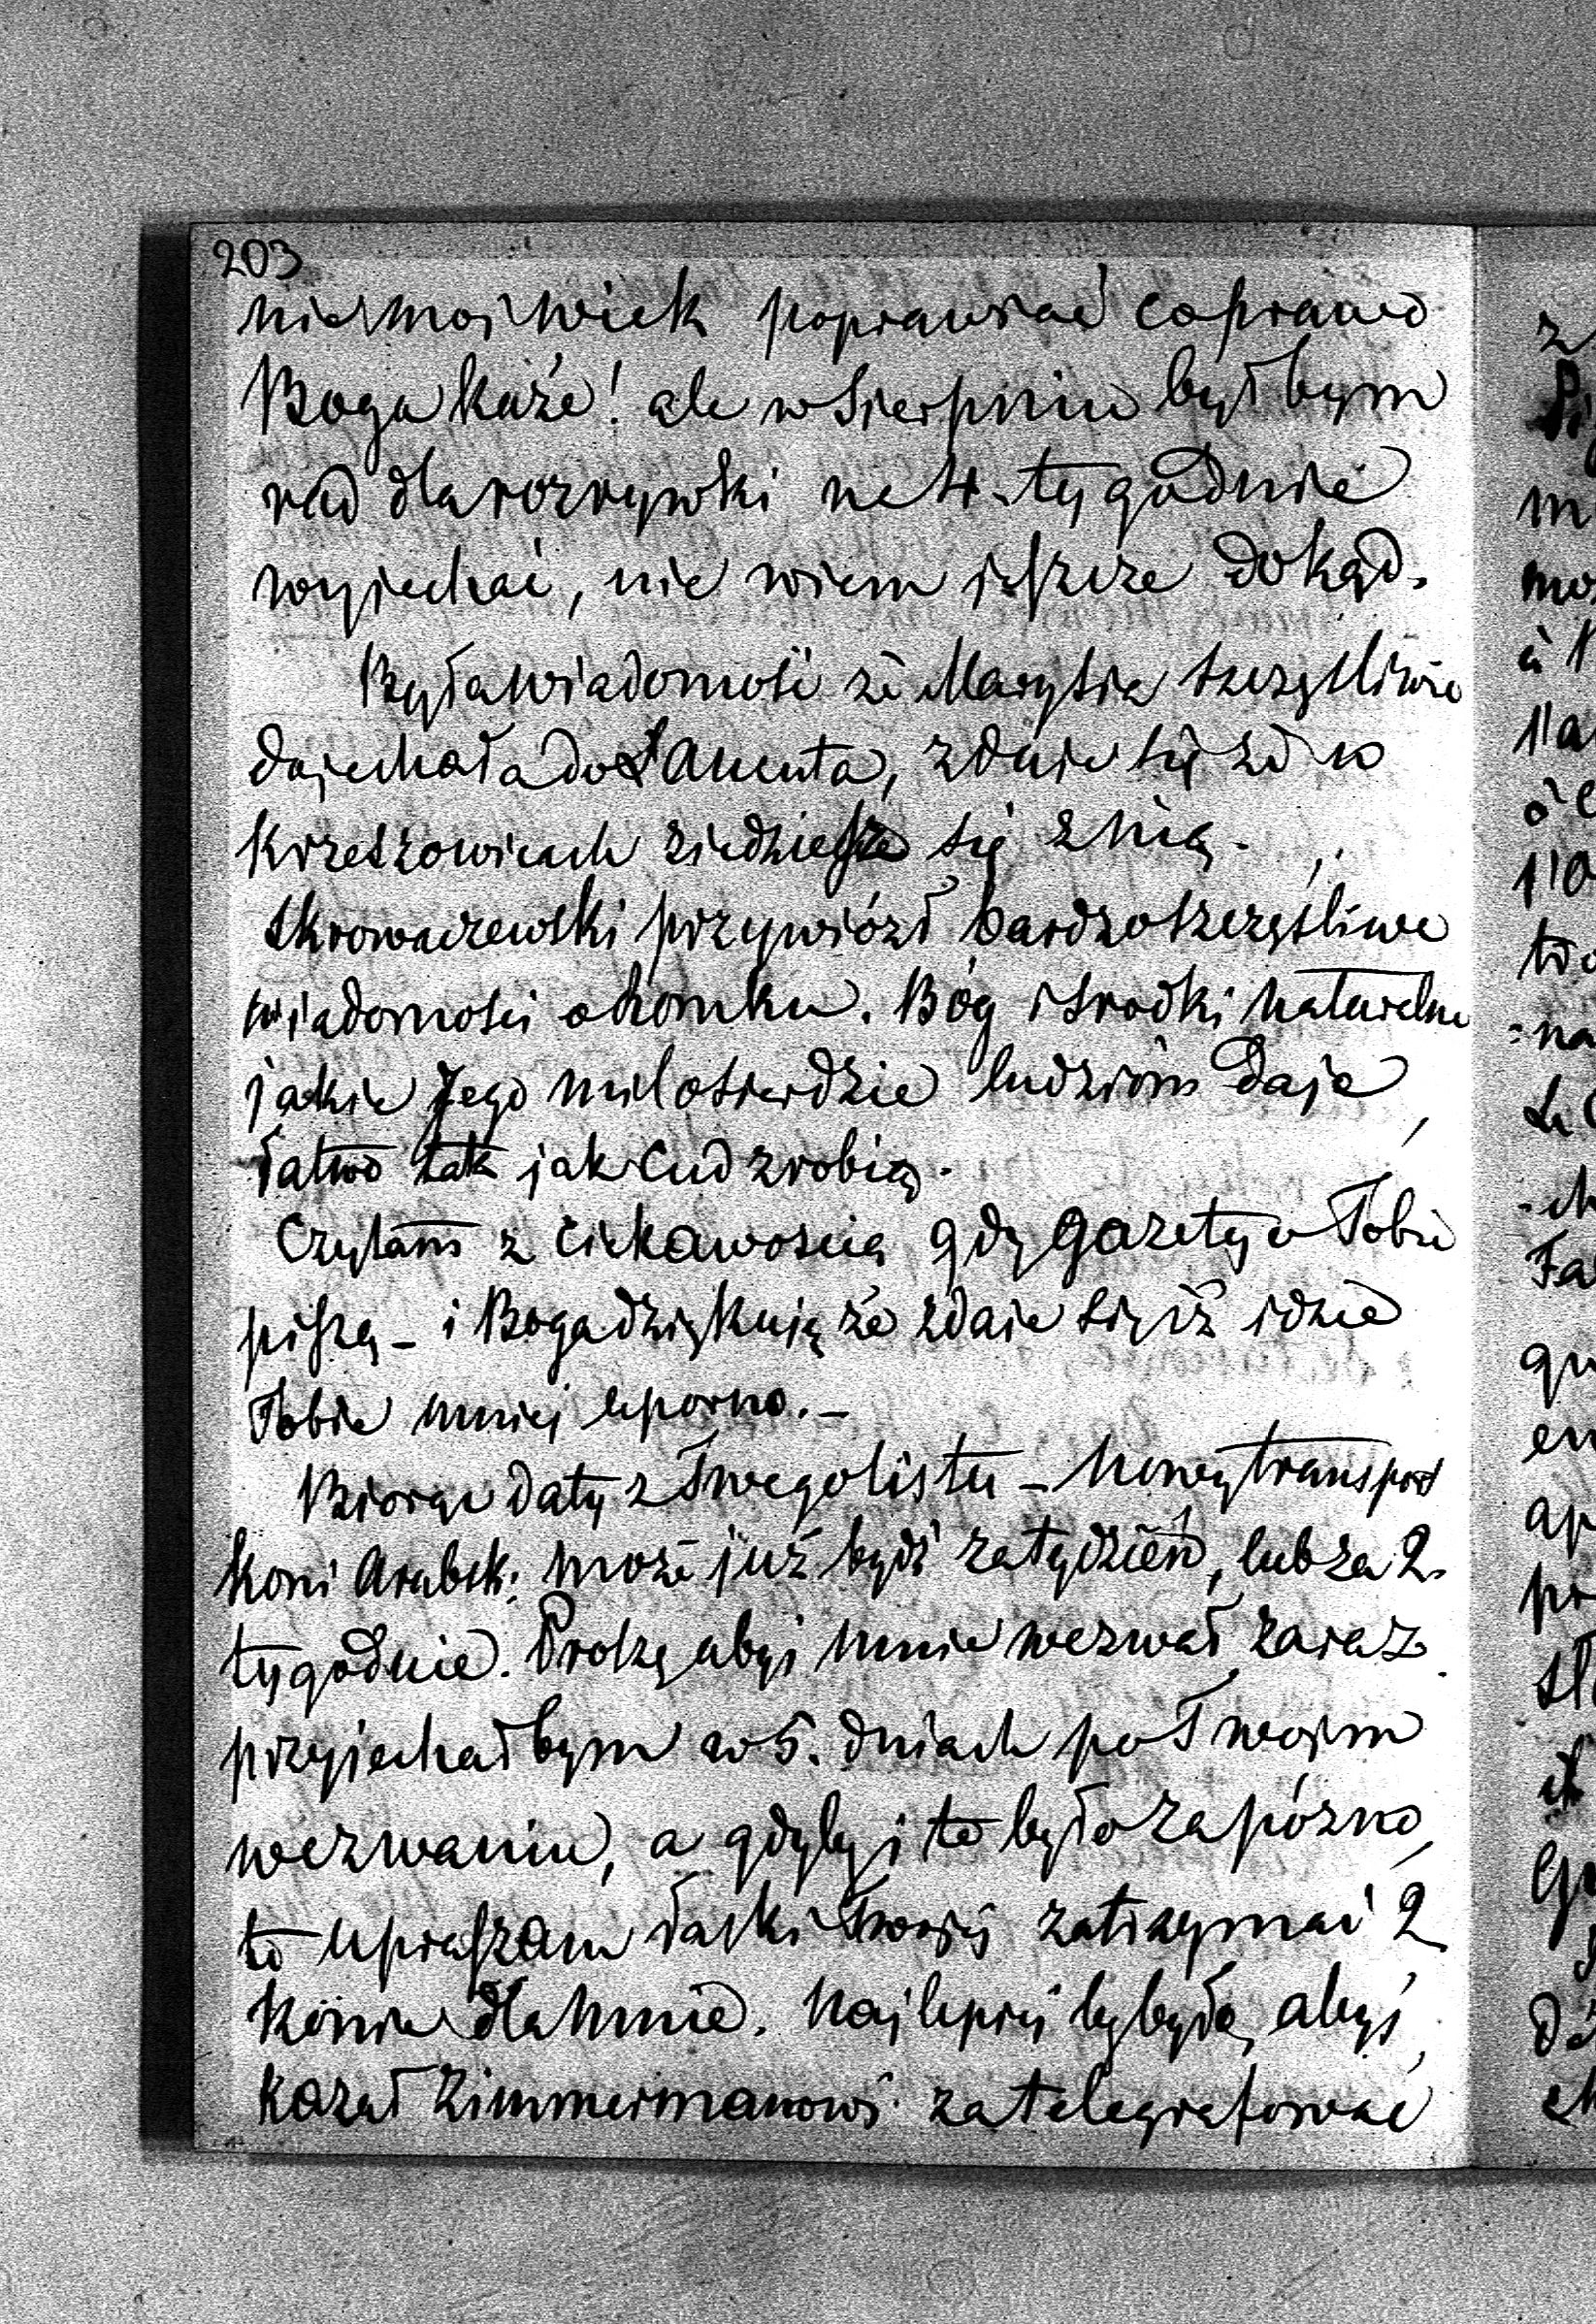 203
nie moj wiek poprawiać co prawo
Boga każe! ale w Sierpniu byłbym
rad dla rozrywki na 4. tygodnie
wyjechać, nie wiem jeszcze dokąd.
Była wiadomość że Marysia szczęśliwie
dojechała do Łańcuta, zdaje się że w
Krzeszowicach
się z nią.
Skrowaczewski przywiózł bardzo szczęśliwe
wiadomości o Romku. Bóg i srodki naturalne
jakie Jego milosierdzie ludziom daje
łatwo tak jak cud zrobią.
Czytam z ciekawoscią gdy gazety o Tobie
piszą – i Bogu dziękuję że zdaje się iż idzie
Tobie mniej uporno. –
Biorąc datę z Twego listu – nowy transport
koni Arabsk: może już bydź za tydzień, lub za 2.
tygodnie. Proszę abyś mnie wezwał zaraz
przyjechałbym w 5. dniach po Twojem
wezwaniu, a gdyby i to było zapózno,
to upraszam łaski Twojej zatrzymać 2
konie dla mnie. Najlepiej by było, abyś
kazał Zimmermanowi zatelegrafować